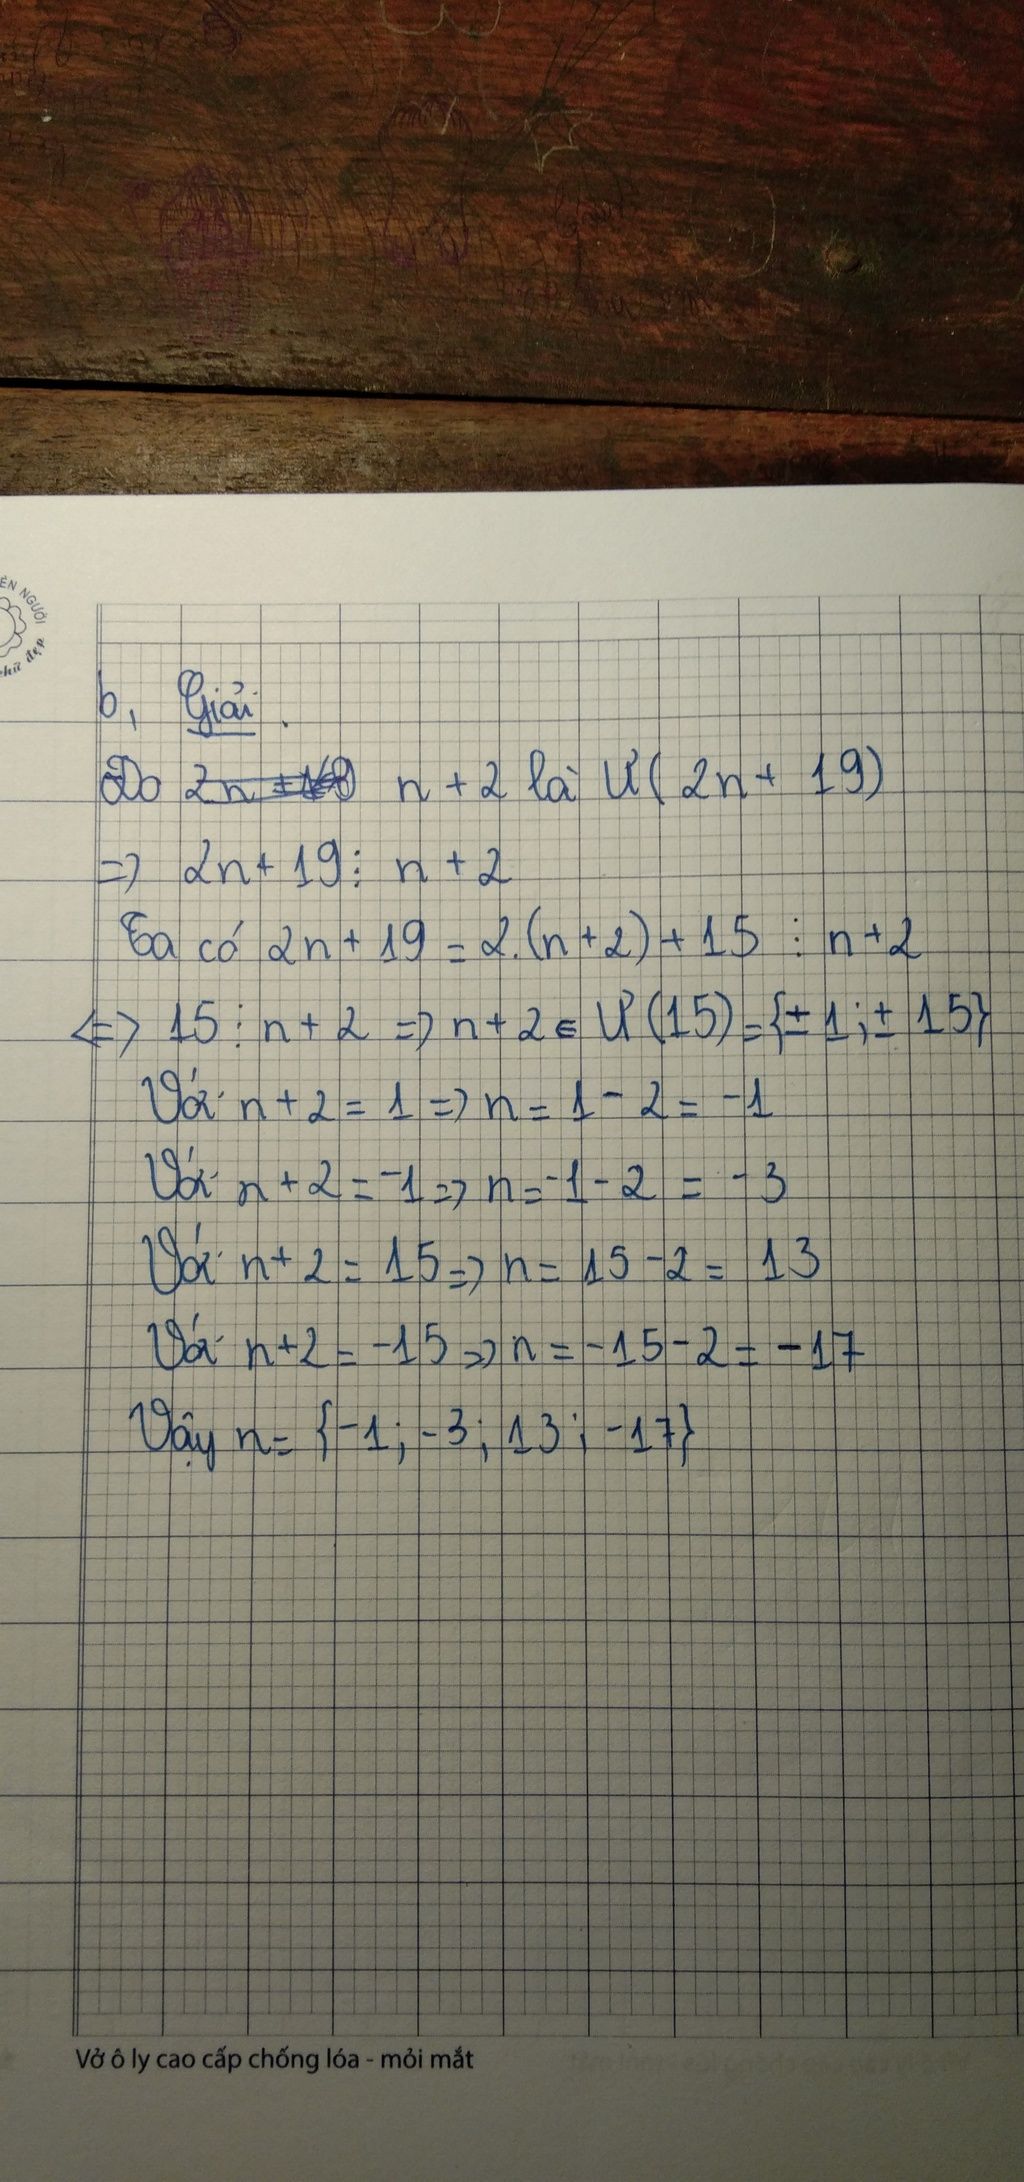 ÊN NGƯỜI
chữ đẹp
b, Giải.
Do n + 2 là Ư( 2n + 19)
=> 2n + 19 ⋮ n + 2
Ta có 2n + 19 = 2.(n+2) + 15 ⋮ n+2
<=> 15 ⋮ n + 2 => n+2 ∈ Ư(15) = {± 1; ± 15}
Với n + 2 = 1 => n = 1 - 2 = -1
Với n + 2 = -1 => n = -1 - 2 = -3
Với n + 2 = 15 => n = 15 - 2 = 13
Với n+2 = -15 => n = -15 - 2 = -17
Vậy n = {-1; -3; 13; -17}
Vở ô ly cao cấp chống lóa - mỏi mắt